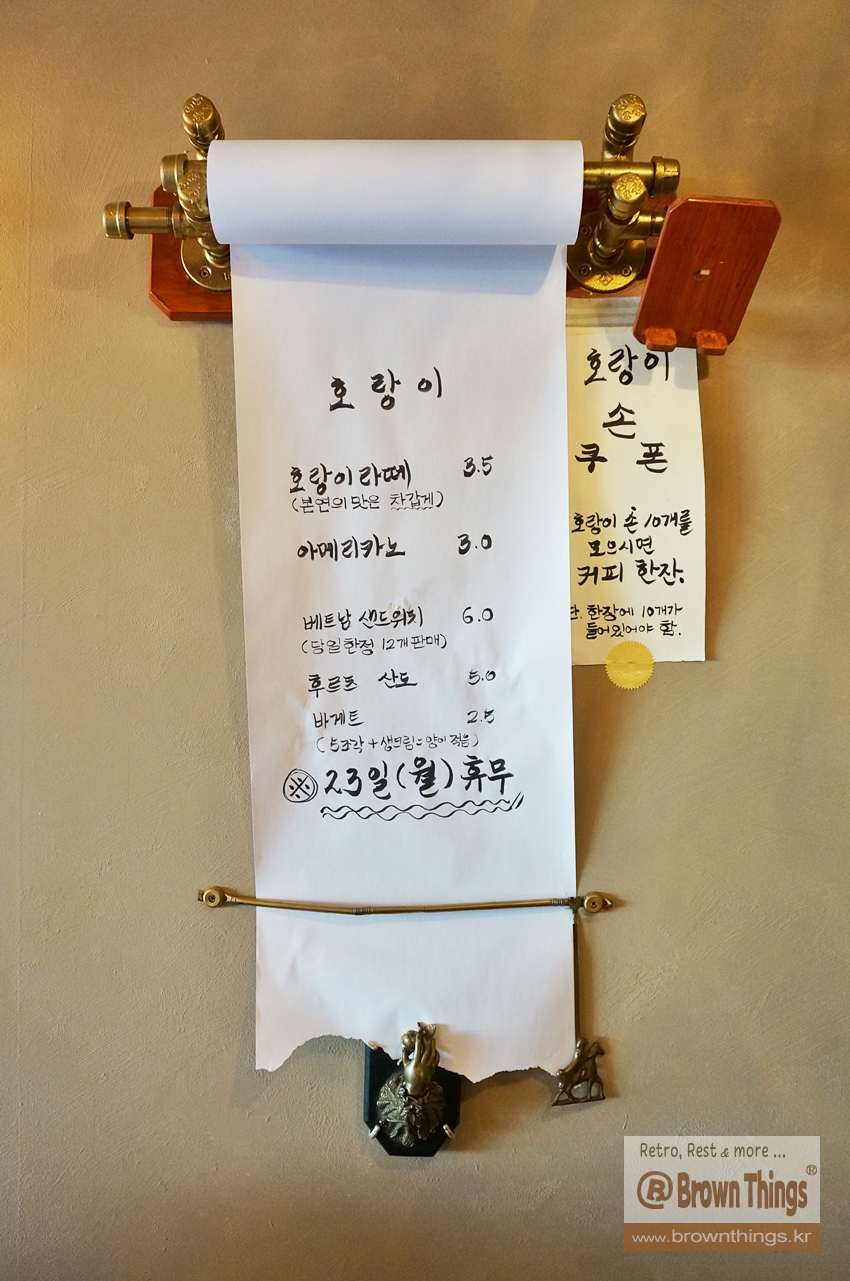 호랑이
호랑이라떼 3.5
(본연의 맛은 차갑게)
아메리카노 3.0
베트남 샌드위치 6.0
(당일한정 12개 판매)
후르츠 산도 5.0
바게트 2.5
(5조각 + 생크림: 양이 적음)
※ 23일(월) 휴무
호랑이
손
쿠 폰
호랑이 손 10개를
모으시면
커피 한잔.
단, 한장에 10개가
들어있어야 함.
Retro, Rest & more ...
® Brown Things®
www.brownthings.kr